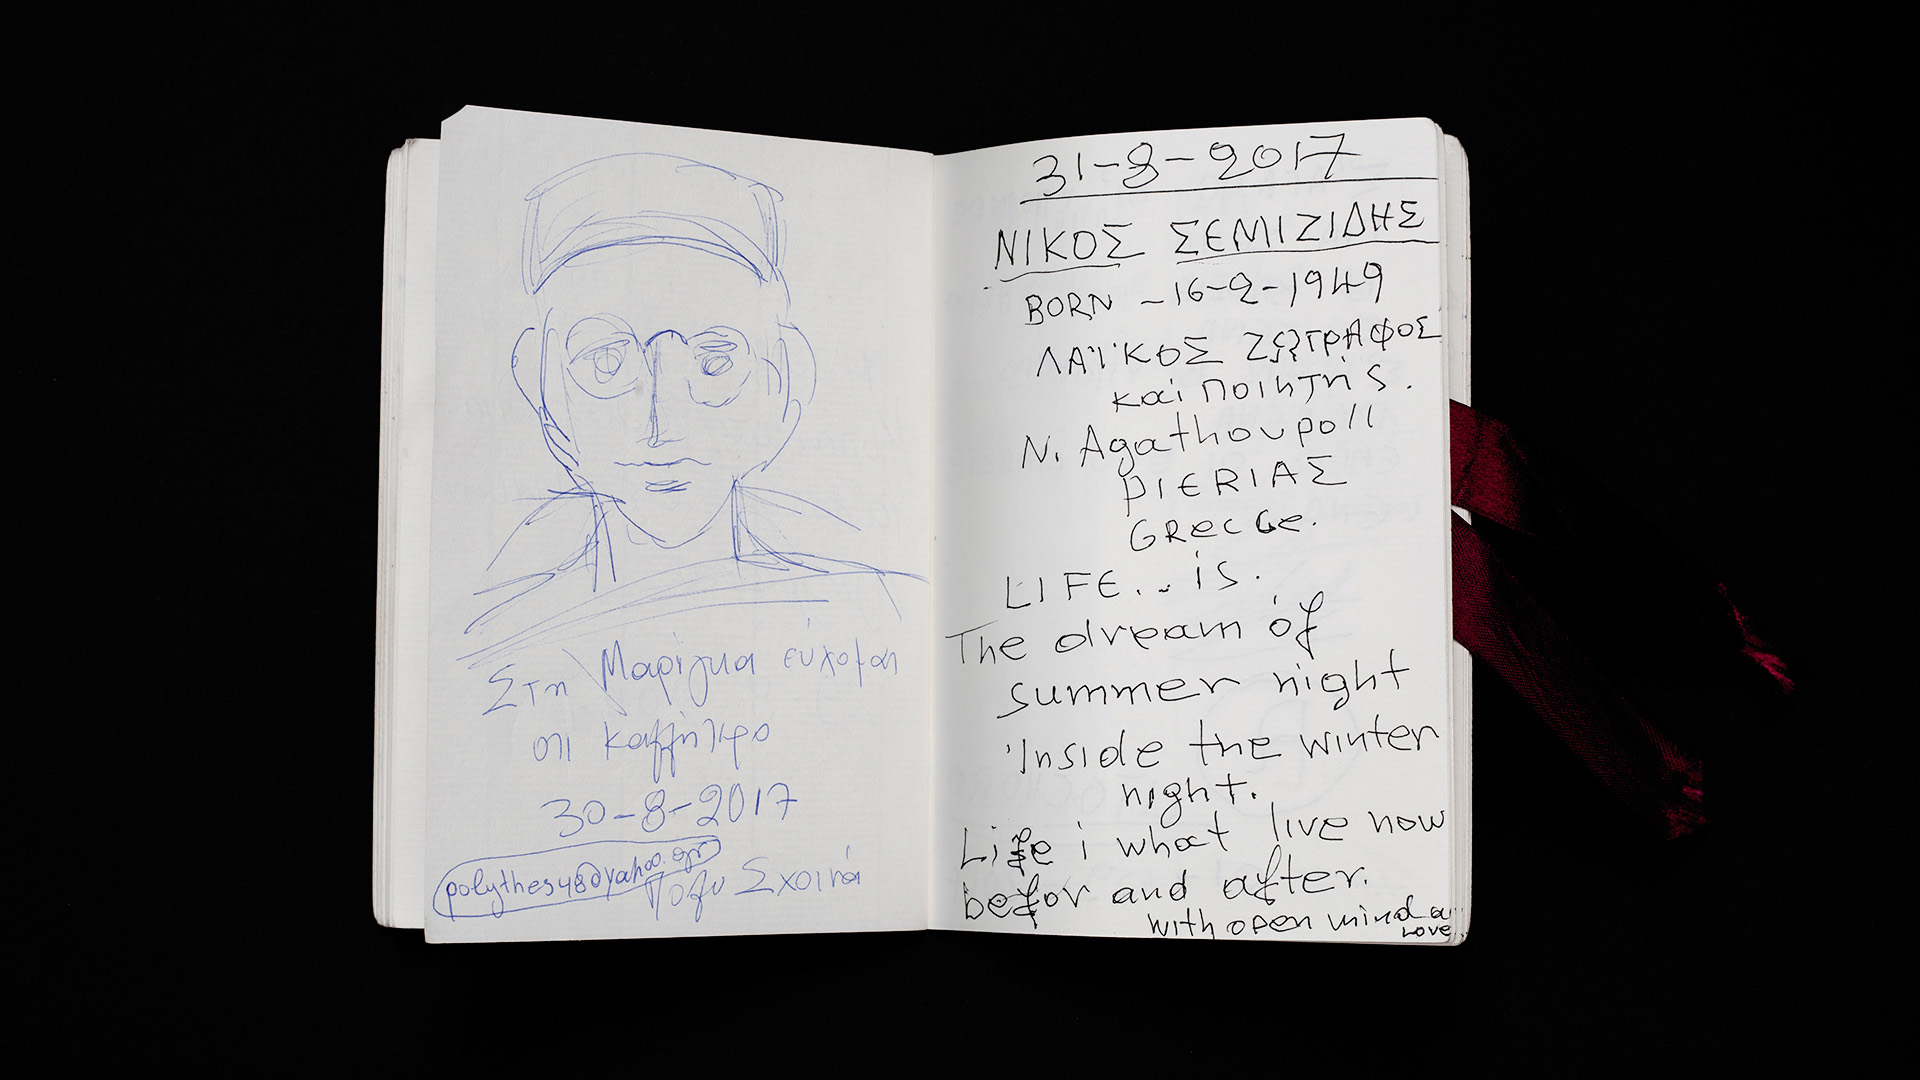 Στη Μαρίγκα εύχομαι
οτι καλλήτερο
30-8-2017
polythes48@yahoo.gr
Πολυ Σχοινά
31-8-2017
ΝΙΚΟΣ ΣΕΜΙΖΙΔΗΣ
BORN -16-2-1949
ΛΑΪΚΟΣ ΖΩΓΡΑΦΟΣ
καί ποιητής.
N. Agathoupoli
PIERIAΣ
GRecGe.
LIFE... is.
The dream of
summer night
Inside the winter
night.
Life i what live now
befor and after.
with open mind a
Love..